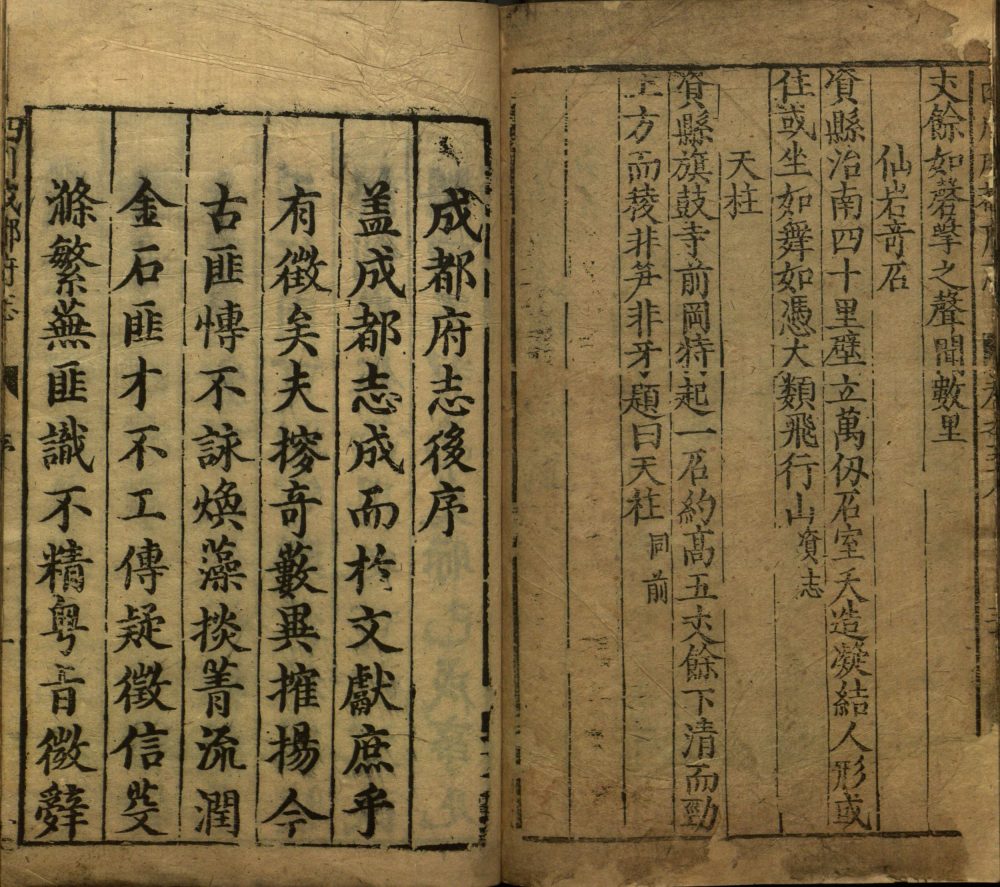 丈餘如磬擊之聲聞數里
仙岩竒石
資縣治南四十里壁立萬仭石室天造凝結人形或
住或坐如舞如憑大類飛行山資志
天柱
資縣旗鼓寺前岡特起一石約髙五丈餘下清而勁
上方而稜非笋非牙題曰天柱同前
成都府志後序
盖成都志成而扵文獻庶乎
有徵矣夫摉竒蔌異搉揚今
古匪愽不詠煥藻掞菁流潤
金石匪才不工傳疑徵信芟
滌繁蕪匪識不精粤昔微辭
四川成都府志
序